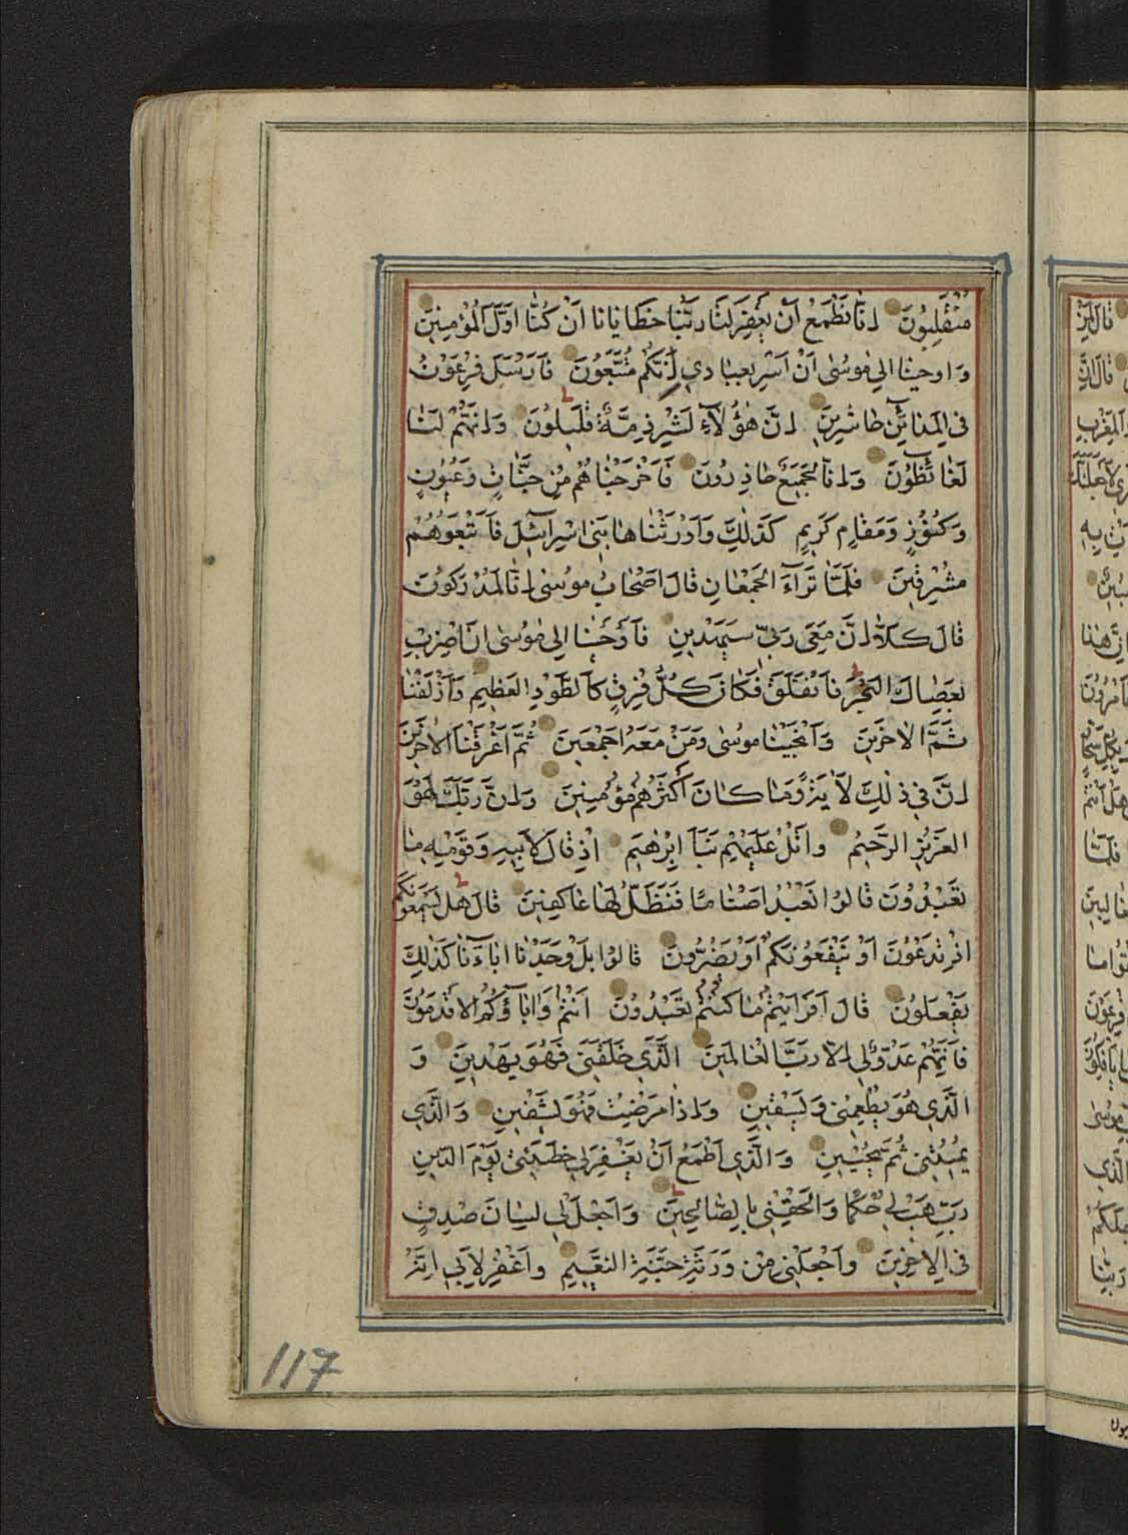 مُنْقَلِبُونَ اِنَّا نَطْمَعُ اَنْ يَغْفِرَ لَنَا رَبُّنَا خَطَايَانَا اَنْ كُنَّا اَوَّلَ الْمُؤْمِنِينَ
وَاَوْحَيْنَا اِلٰى مُوسٰى اَنْ اَسْرِ بِعِبَادِي اِنَّكُمْ مُتَّبَعُونَ فَاَرْسَلَ فِرْعَوْنُ
فِى الْمَدَائِنِ حَاشِرِينَ اِنَّ هٰؤُلَاءِ لَشِرْذِمَةٌ قَلِيلُونَ وَاِنَّهُمْ لَنَا
لَغَائِظُونَ وَاِنَّا لَجَمِيعٌ حَاذِرُونَ فَاَخْرَجْنَاهُمْ مِنْ جَنَّاتٍ وَعُيُونٍ
وَكُنُوزٍ وَمَقَامٍ كَرِيمٍ كَذٰلِكَ وَاَوْرَثْنَاهَا بَنِى اِسْرَائِيلَ فَاَتْبَعُوهُمْ
مُشْرِقِينَ فَلَمَّا تَرَاءَ الْجَمْعَانِ قَالَ اَصْحَابُ مُوسٰى اِنَّا لَمُدْرَكُونَ
قَالَ كَلَّا اِنَّ مَعِىَ رَبِّى سَيَهْدِينِ فَاَوْحَيْنَا اِلٰى مُوسٰى اَنِ اضْرِبْ
بِعَصَاكَ الْبَحْرَ فَانْفَلَقَ فَكَانَ كُلُّ فِرْقٍ كَالطَّوْدِ الْعَظِيمِ وَاَزْلَفْنَا
ثَمَّ الْاٰخَرِينَ وَاَنْجَيْنَا مُوسٰى وَمَنْ مَعَهُ اَجْمَعِينَ ثُمَّ اَغْرَقْنَا الْاٰخَرِينَ
اِنَّ فِى ذٰلِكَ لَاٰيَةً وَمَا كَانَ اَكْثَرُهُمْ مُؤْمِنِينَ وَاِنَّ رَبَّكَ لَهُوَ
الْعَزِيزُ الرَّحِيمُ وَاتْلُ عَلَيْهِمْ نَبَاَ اِبْرٰهِيمَ اِذْ قَالَ لِاَبِيهِ وَقَوْمِهِ مَا
تَعْبُدُونَ قَالُوا نَعْبُدُ اَصْنَامًا فَنَظَلُّ لَهَا عَاكِفِينَ قَالَ هَلْ يَسْمَعُونَكُمْ
اِذْ تَدْعُونَ اَوْ يَنْفَعُونَكُمْ اَوْ يَضُرُّونَ قَالُوا بَلْ وَجَدْنَا اٰبَاءَنَا كَذٰلِكَ
يَفْعَلُونَ قَالَ اَفَرَاَيْتُمْ مَا كُنْتُمْ تَعْبُدُونَ اَنْتُمْ وَاٰبَاؤُكُمُ الْاَقْدَمُونَ
فَاِنَّهُمْ عَدُوٌّ لِى اِلَّا رَبَّ الْعَالَمِينَ الَّذِى خَلَقَنِى فَهُوَ يَهْدِينِ وَ
الَّذِى هُوَ يُطْعِمُنِى وَيَسْقِينِ وَاِذَا مَرِضْتُ فَهُوَ يَشْفِينِ وَالَّذِى
يُمِيتُنِى ثُمَّ يُحْيِينِ وَالَّذِى اَطْمَعُ اَنْ يَغْفِرَ لِى خَطِيئَتِى يَوْمَ الدِّينِ
رَبِّ هَبْ لِى حُكْمًا وَاَلْحِقْنِى بِالصَّالِحِينَ وَاجْعَلْ لِى لِسَانَ صِدْقٍ
فِى الْاٰخِرِينَ وَاجْعَلْنِى مِنْ وَرَثَةِ جَنَّةِ النَّعِيمِ وَاغْفِرْ لِاَبِى اِنَّهُ
117